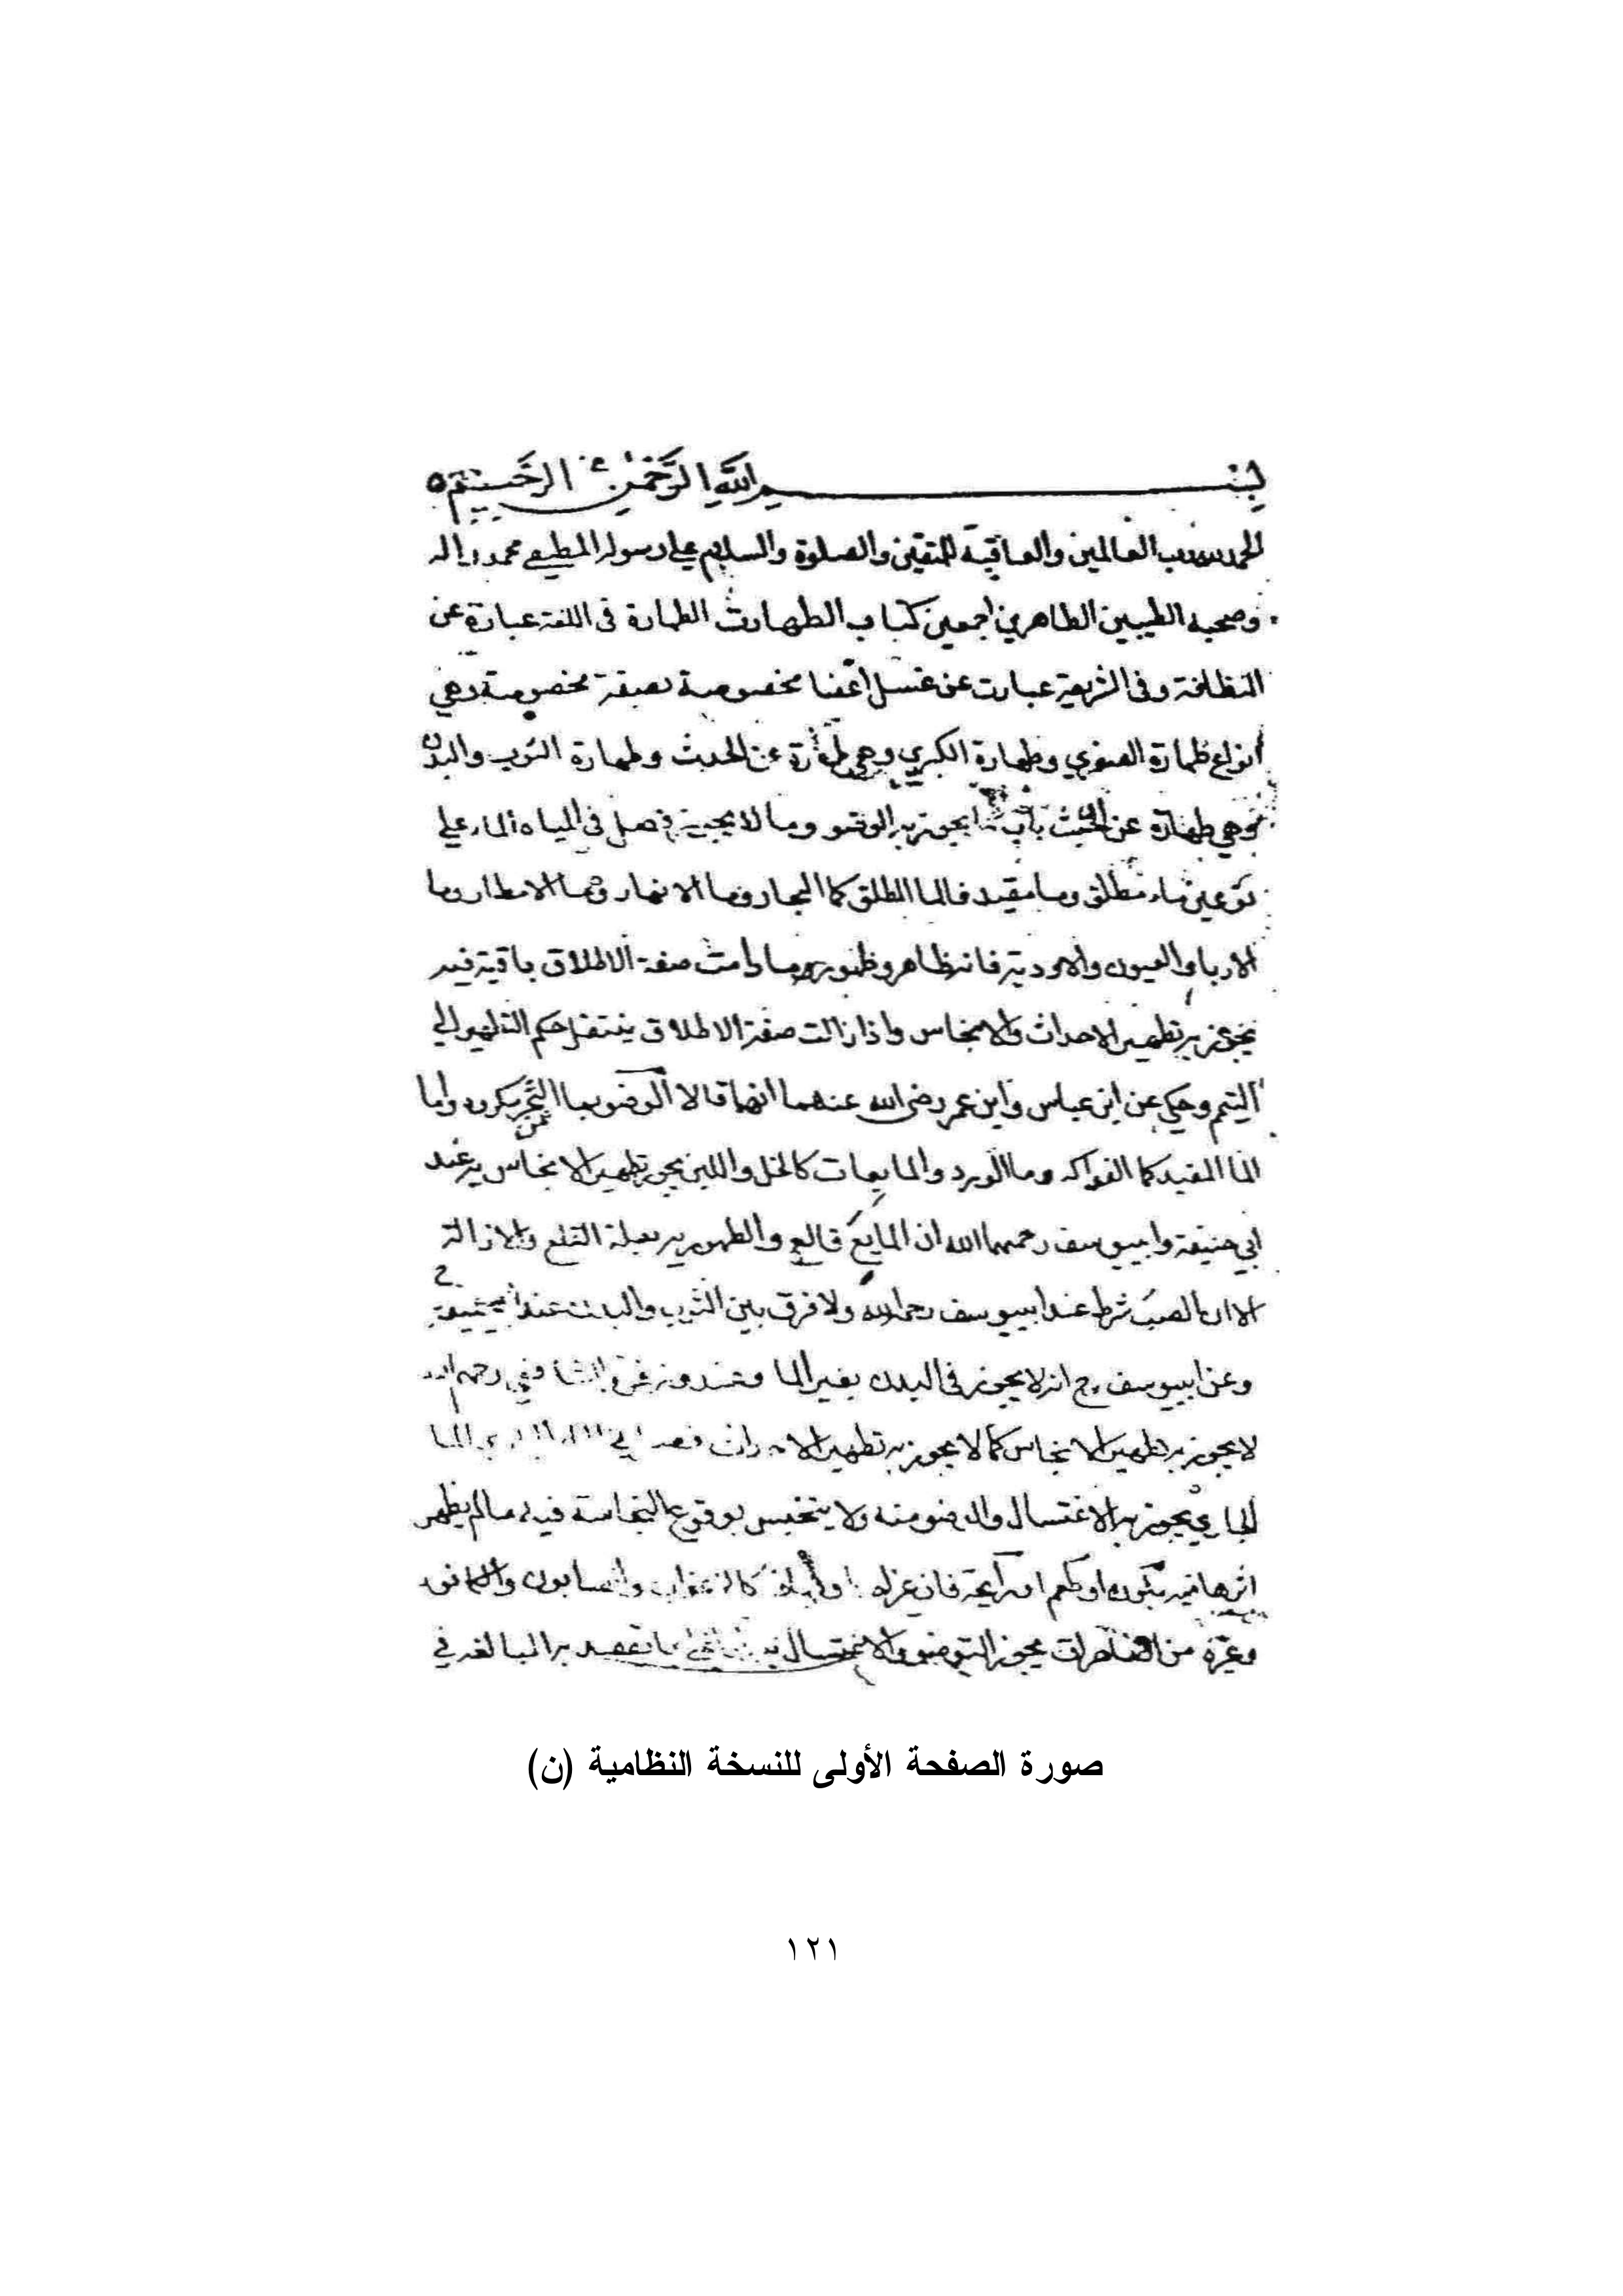 بسم الله الرحمن الرحيم
الحمد لله رب العالمين والعاقبة للمتقين والصلوة والسلام على رسوله المطيع محمد واله
وصحبه الطيبين الطاهرين اجمعين كتاب الطهارت الطهارة فى اللغة عبارة عن
النظافة وفى الشريعة عبارت عن غسل اعضا مخصوصة بصيغة مخصوصة وهي
انواع طهارة الصغري وطهارة الكبري وهي طهارة عن الحدث وطهارة الثوب والبدن
وهي طهارة عن الخبث باب ما يجوز به الوضو وما لا يجوز به فصل فى المياه الماء على
نوعين ماء مطلق وما مقيد فالما المطلق كما البحار وما الانهار وما الامطار وما
الابار والعيون والاودية فانه ظاهر وظهور وما دامت صفة الاطلاق باقية فيه
يجوز به تطهير الاحداث والانجاس واذا زالت صفة الاطلاق ينتقل حكم التطهير الي
التيمم وحكي عن ابن عباس وابن عمر رضى الله عنهما انهما قالا الوضو بما البحر يكره واما
الما المقيد كما الفواكه وما الورد والمايعات كالخل واللبن يجوز تطهير الانجاس به عند
ابي حنيفة وابيوسف رحمهما الله ان المايع قالع والطهورية بعلة القلع والازالة
الا ان الصب شرط عند ابيوسف رحمه الله ولا فرق بين الثوب والبدن عند ابيحنيفة ح
وعن ابيوسف رح انه لا يجوز فى البدن بغير الما وعند وزفر والشافعي رحمهم الله
لا يجوز به تطهير الانجاس كما لا يجوز به تطهير الاحداث فصل في الماء الجاري الما
الجاري يجوز به الاغتسال والوضو منه ولا يتنجس بوقوع النجاسة فيه ما لم يظهر
اثرها فيه بلون او طعم او رايحة فان كالزعفران والصابون
وغيره من الطاهرات يجوز التوضو والاغتسال به يقصد به المبالغة في
صورة الصفحة الأولى للنسخة النظامية (ن)
١٢١